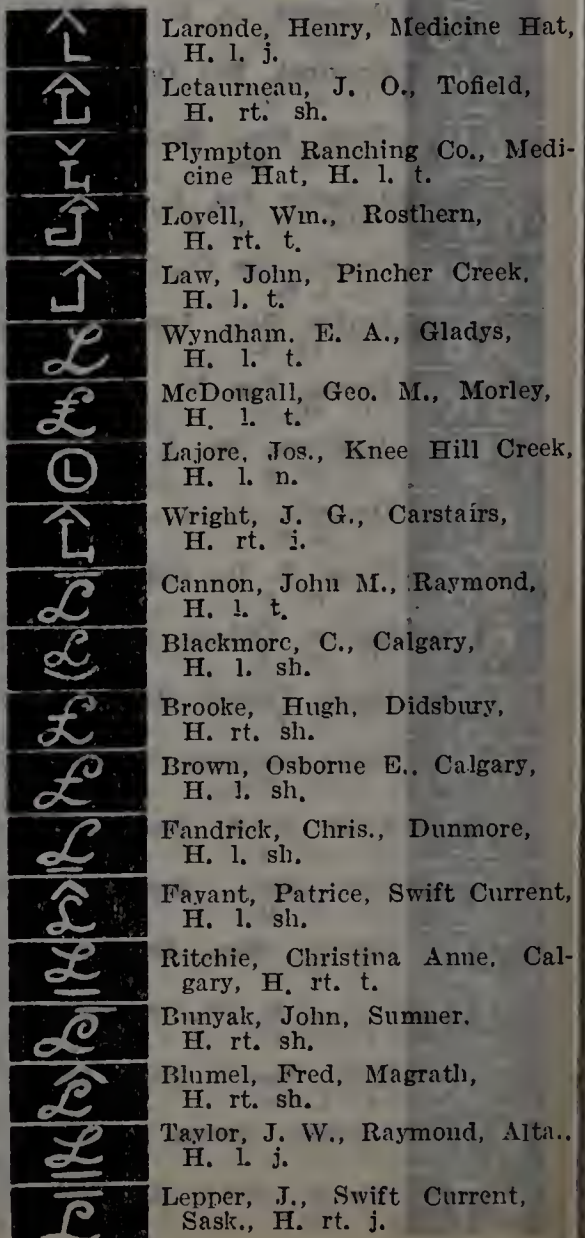 Laronde, Henry, Medicine Hat,
H. l. j.
Letaurneau, J. O., Tofield,
H. rt. sh.
Plympton Ranching Co., Medi-
cine Hat, H. l. t.
Lovell, Wm., Rosthern,
H. rt. t.
Law, John, Pincher Creek,
H. l. t.
Wyndham. E. A., Gladys,
H. l. t.
McDougall, Geo. M., Morley,
H. l. t.
Lajore, Jos., Knee Hill Creek,
H. l. n.
Wright, J. G., Carstairs,
H. rt. j.
Cannon, John M., Raymond,
H. l. t.
Blackmore, C., Calgary,
H. l. sh.
Brooke, Hugh, Didsbury,
H. rt. sh.
Brown, Osborne E., Calgary,
H. l. sh.
Fandrick, Chris., Dunmore,
H. l. sh.
Fayant, Patrice, Swift Current,
H. l. sh.
Ritchie, Christina Anne, Cal-
gary, H. rt. t.
Bunyak, John, Sumner,
H. rt. sh.
Blumel, Fred, Magrath,
H. rt. sh.
Taylor, J. W., Raymond, Alta..
H. l. j.
Lepper, J., Swift Current,
Sask., H. rt. j.